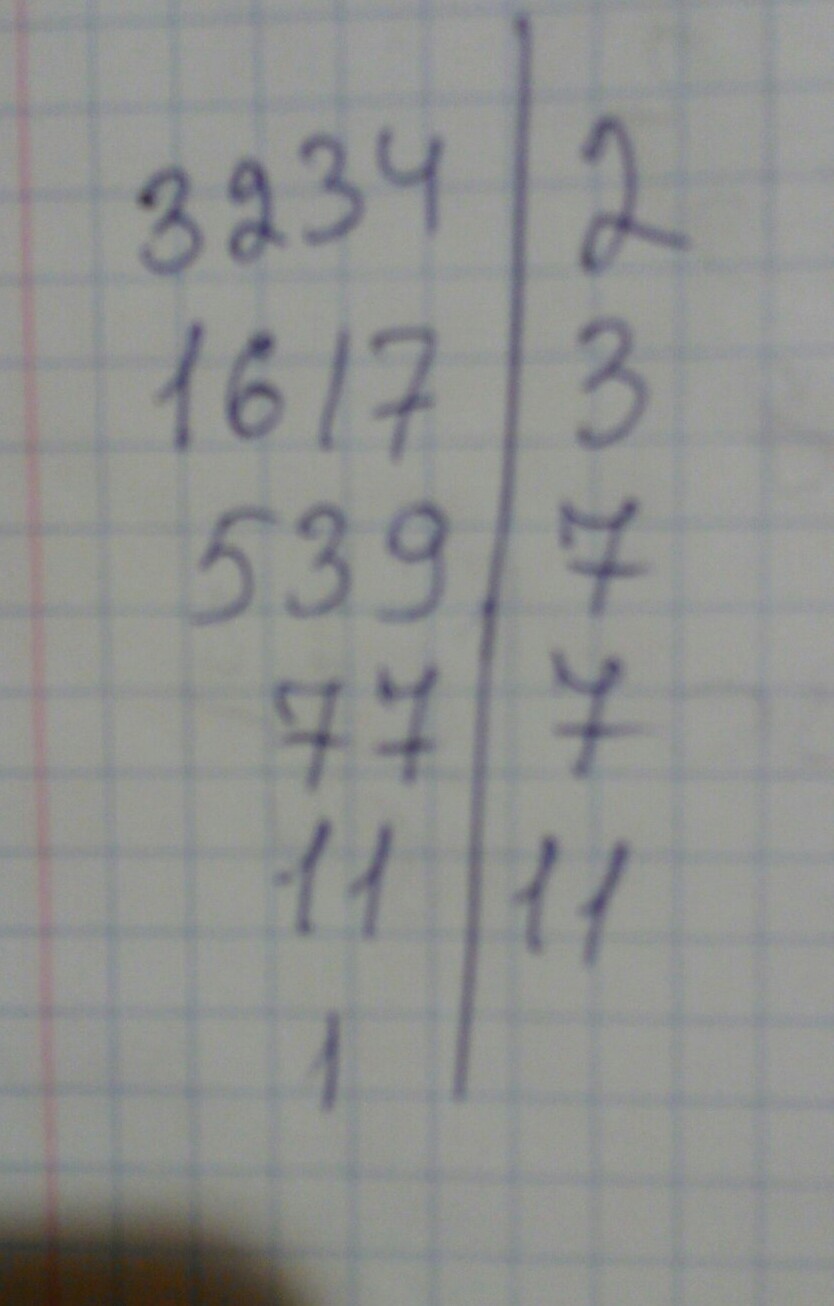 3234 | 2
1617 | 3
539 | 7
77 | 7
11 | 11
1 |